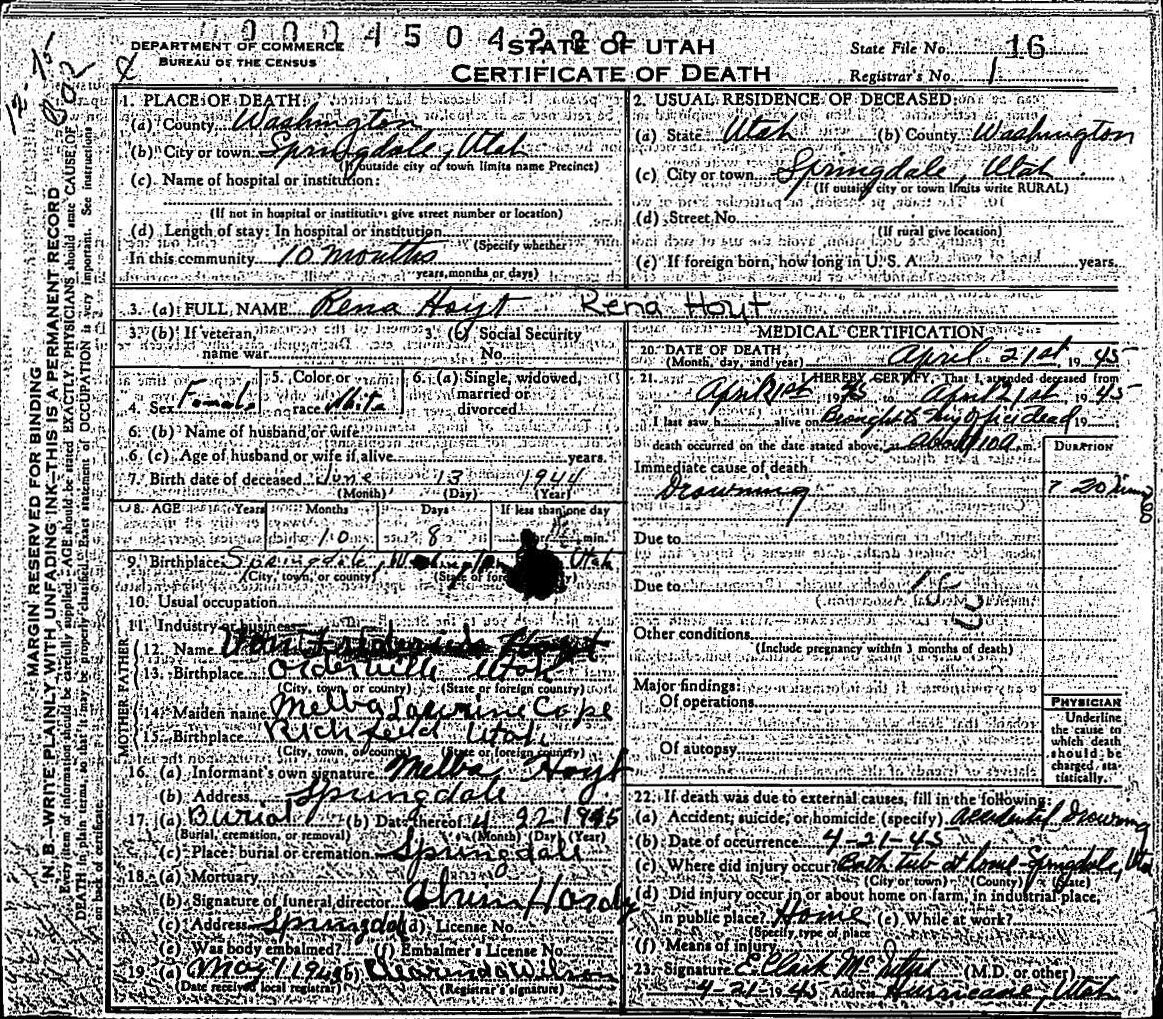 DEPARTMENT OF COMMERCE
BUREAU OF THE CENSUS
STATE OF UTAH
CERTIFICATE OF DEATH
State File No. 16
Registrar's No. 1
MARGIN RESERVED FOR BINDING
N. B.—WRITE PLAINLY WITH UNFADING INK—THIS IS A PERMANENT RECORD
Every item of information should be carefully supplied. AGE should be stated EXACTLY. PHYSICIANS should state CAUSE OF
DEATH in plain terms, so that it may be properly classified. Exact statement of OCCUPATION is very important. See instructions
on back of certificate.
1. PLACE OF DEATH
(a) County Washington
(b) City or town Springdale, Utah
(If outside city or town limits name Precinct)
(c) Name of hospital or institution:
(If not in hospital or institution give street number or location)
(d) Length of stay: In hospital or institution
(Specify whether
In this community 10 months
years, months or days)
2. USUAL RESIDENCE OF DECEASED:
(a) State Utah (b) County Washington
(c) City or town Springdale, Utah
(If outside city or town limits write RURAL)
(d) Street No.
(If rural give location)
(e) If foreign born, how long in U. S. A. years.
3. (a) FULL NAME Rena Hoyt Rena Hoyt
3. (b) If veteran, name war
3. (c) Social Security No.
4. Sex Female
5. Color or race White
6. (a) Single, widowed, married or divorced
6. (b) Name of husband or wife
6. (c) Age of husband or wife if alive years.
7. Birth date of deceased June 13 1944
(Month) (Day) (Year)
8. AGE Years Months Days If less than one day
10 8 min.
9. Birthplace Springdale, Utah
(City, town, or county) (State or foreign country)
10. Usual occupation
11. Industry or business
FATHER
12. Name Hoyt
13. Birthplace Orderville Utah
(City, town, or county) (State or foreign country)
MOTHER
14. Maiden name Melba Cope
15. Birthplace Richfield Utah
(City, town, or county) (State or foreign country)
16. (a) Informant's own signature Melba Hoyt
(b) Address Springdale
17. (a) Burial (b) Date thereof 4 22 1945
(Burial, cremation, or removal) (Month) (Day) (Year)
(c) Place: burial or cremation Springdale
18. (a) Mortuary
(b) Signature of funeral director
(c) Address Springdale (d) License No.
(e) Was body embalmed? (f) Embalmer's License No.
19. (a) May 1 194 (b) Wilson
(Date received local registrar) (Registrar's signature)
MEDICAL CERTIFICATION
20. DATE OF DEATH April 21st, 1945
(Month, day, and year)
21. I HEREBY CERTIFY, That I attended deceased from
April 21st 1945 to April 21st 1945
I last saw h alive on Brought to my office dead 19
death occurred on the date stated above, at About 10 a. m.
DURATION
Immediate cause of death
Drowning ? 20 mins
Due to
Due to
Other conditions
(Include pregnancy within 3 months of death)
Major findings:
Of operations
Of autopsy
PHYSICIAN
Underline
the cause to
which death
should be
charged sta-
tistically.
22. If death was due to external causes, fill in the following:
(a) Accident, suicide, or homicide (specify) Accidental Drowning
(b) Date of occurrence 4-21-45
(c) Where did injury occur Bath tub at home Springdale, Uta
(City or town) (County) (State)
(d) Did injury occur in or about home on farm, in industrial place,
in public place? Home (e) While at work?
(Specify type of place
(f) Means of injury
23. Signature E. Clark (M.D. or other)
4-21-1945 Address Hurricane, Utah